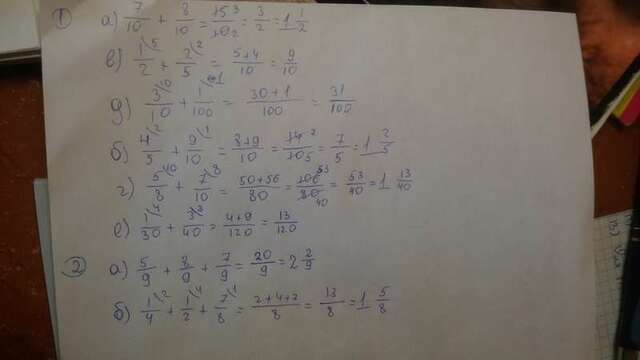 1) а) 7/10 + 8/10 = 15³/10₂ = 3/2 = 1 1/2
в) 1\5/2 + 2\2/5 = 5+4/10 = 9/10
д) 3\10/10 + 1\1/100 = 30+1/100 = 31/100
б) 4\2/5 + 9\1/10 = 8+9/10 = 14²/10₅ = 7/5 = 1 2/5
г) 5\10/8 + 7\8/10 = 50+56/80 = 106⁵³/80₄₀ = 53/40 = 1 13/40
е) 1\4/30 + 3\3/40 = 4+9/120 = 13/120
2) а) 5/9 + 8/9 + 7/9 = 20/9 = 2 2/9
б) 1\2/4 + 1\4/2 + 7\1/8 = 2+4+7/8 = 13/8 = 1 5/8